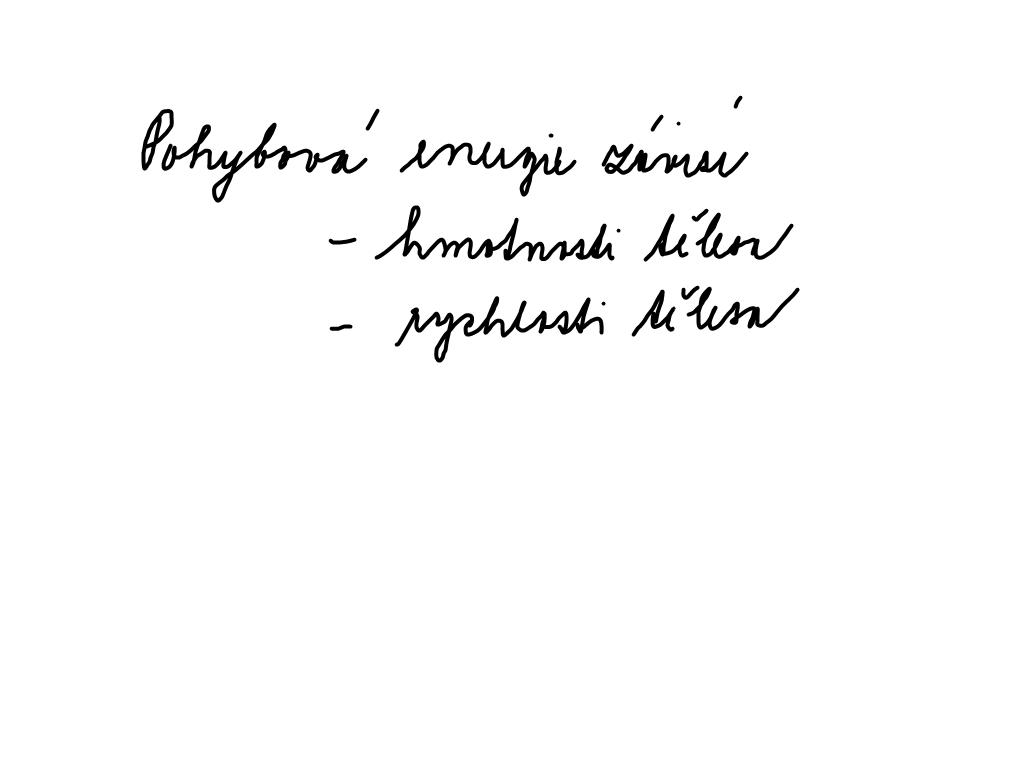 Pohybová energie závisí
- hmotnosti tělesa
- rychlosti tělesa